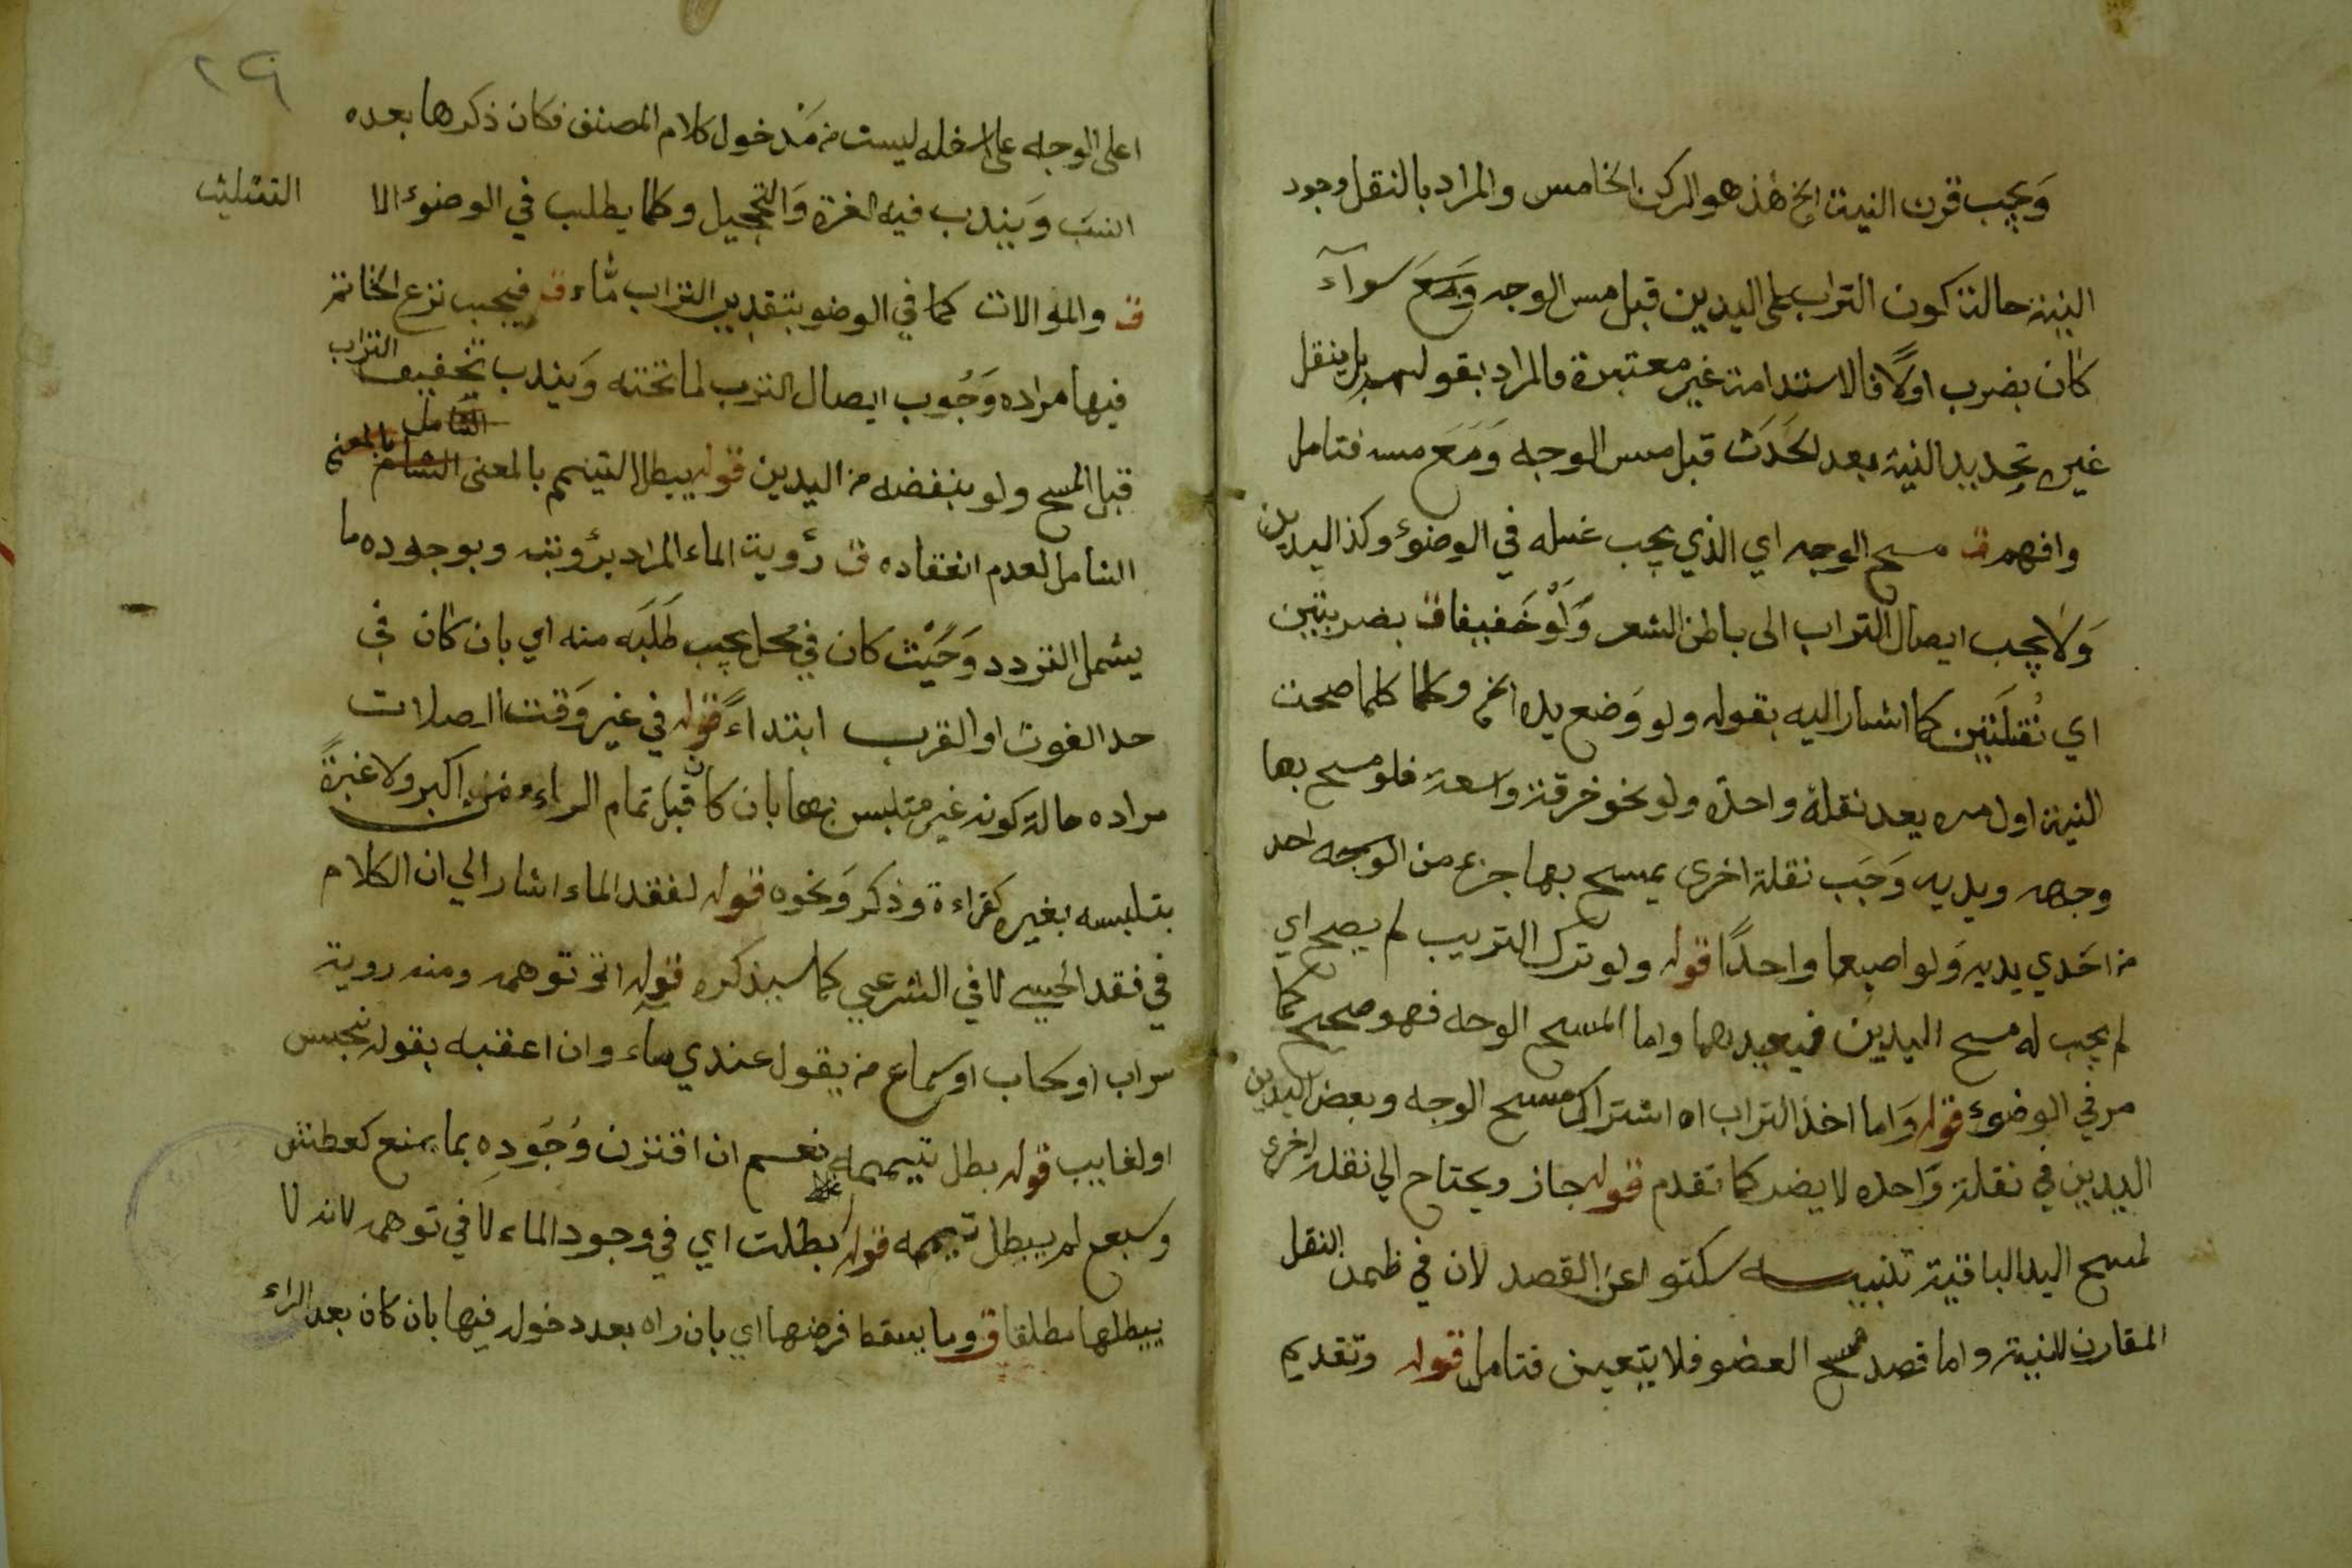 وَيجب قرن النية الخ هذ هو الركن الخامس والمراد بالنقل وجود
النية حالة كون التراب على اليدين قبل مس الوجه وَمَعَ سوآء
كان بضرب اولاً فالاستدامة غير معتبرة فالمراد بقوله بل ينقل
غيره تجديد النية بعد الحَدَث قبل مس الوجه وَمَعَ مسه فتامل
وافهم ق مسح الوجه اي الذي يجب غسله في الوضوء وكذ اليدين
وَلا يجب ايصال التراب الى باطن الشعر وَلَوْ خَفيفا ق بضربتين
اي نُقلَتَين كما اشار اليه بقوله ولو وَضع يده الخ وكلما كلما صحت
النية اول مره يعد نقلة واحدة ولو نحو خرقة واسعة فلو مسح بها
وجهه ويديه وَجَب نقلة اخرى يمسح بها جزء من الوجه احد
من احَدي يديه وَلو اصبعا واحدًا قوله ولو ترك الترتيب لم يصح اي
لم يجب له مسح اليدين فيعيدهما واما المسح الوجه فهو صحيح كما
مر في الوضوء قوله وَاما اخذ التراب اه اشتراك مسح الوجه وبعض اليدين
اليدين في نقلة وَاحده لا يضر كما تقدم قوله جاز ويحتاج الي نقلة اخرى
لمسح اليد الباقية تنبيه سكتوا عن القصد لان في ظمن النقل
المقارن للنية واما قصد مسح العضو فلا يتعين فتامل قوله وتقديم
٢٩
اعلى الوجه على اسفله ليست من مَدخول كلام المصنف فكان ذكرها بعده
انسَب وَيندب فيه الغرة وَالتحجيل وكلما يطلب في الوضوء الا
التثليث
ق والموالات كما في الوضو بتقدير التراب مّاء ق فيجب نزع الخاتم
فيها مراده وَجُوب ايصال الترب لما تحته وَيندب تخفيف التراب
قبل المسح ولو بنفضه من اليدين قوله يبطل التيمم بالمعنى
الشامل لعدم انعقاده ق رؤية الماء المراد برؤيته وبوجوده ما
يشمل التردد وَحَيْث كان في محل يجب طَلَبَه منه اي بان كان في
حد الغوث او القرب ابتداءً قوله في غير وَقت الصلات
مراده حالة كونه غير متلبس بها بان كان قبل تمام الراء من اكبر ولا عبرةً
بتلبسه بغيره كقراءة وذكر وَنحوه قوله لفقد الماء اشار الي ان الكلام
في فقد الحسي لا في الشرعي كما سيذكره قوله او توهمه ومنه روية
سراب او سحاب او سماع من يقول عندي ماء وان اعقبه بقوله نجس
او لغايب قوله بطل تيممه نعم ان اقترن وُجُودِه بما يمنع كعطش
وسبع لم يبطل تيممه قوله بطلت اي في وجود الماء لا في توهمه لانه لا
يبطلها مطلقا ق وما يسقط فرضها اي بان راه بعد دخوله فيها بان كان بعد الراء